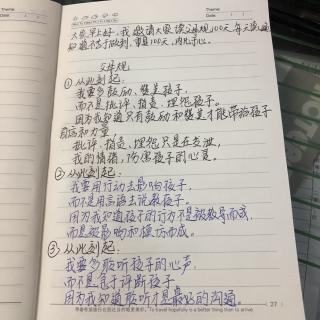 Theme:
Theme:
Date: / /
Date: / /
大家早上好,我邀请大家读父母规100天,每天读,
知道不等于做到,重复100天,内化于心。
父母规
①从此刻起:
我要多鼓励、赞美孩子,
而不是批评、指责、埋怨孩子。
因为我知道只有鼓励和赞美才能带给孩子
自信和力量
批评、指责、埋怨只是在发泄
我的情绪,伤害孩子的心灵。
②从此刻起:
我要用行动去影响孩子,
而不是用言语去说教孩子。
因为我知道孩子的行为不是被教导而成,
而是被影响和模仿而成。
③从此刻起:
我要多聆听孩子的心声,
而不是急于评断孩子。
因为我知道聆听才是最好的沟通。
27
怀着希望旅行比到达目的地更美好。To travel hopefully is a better thing than to arrive.